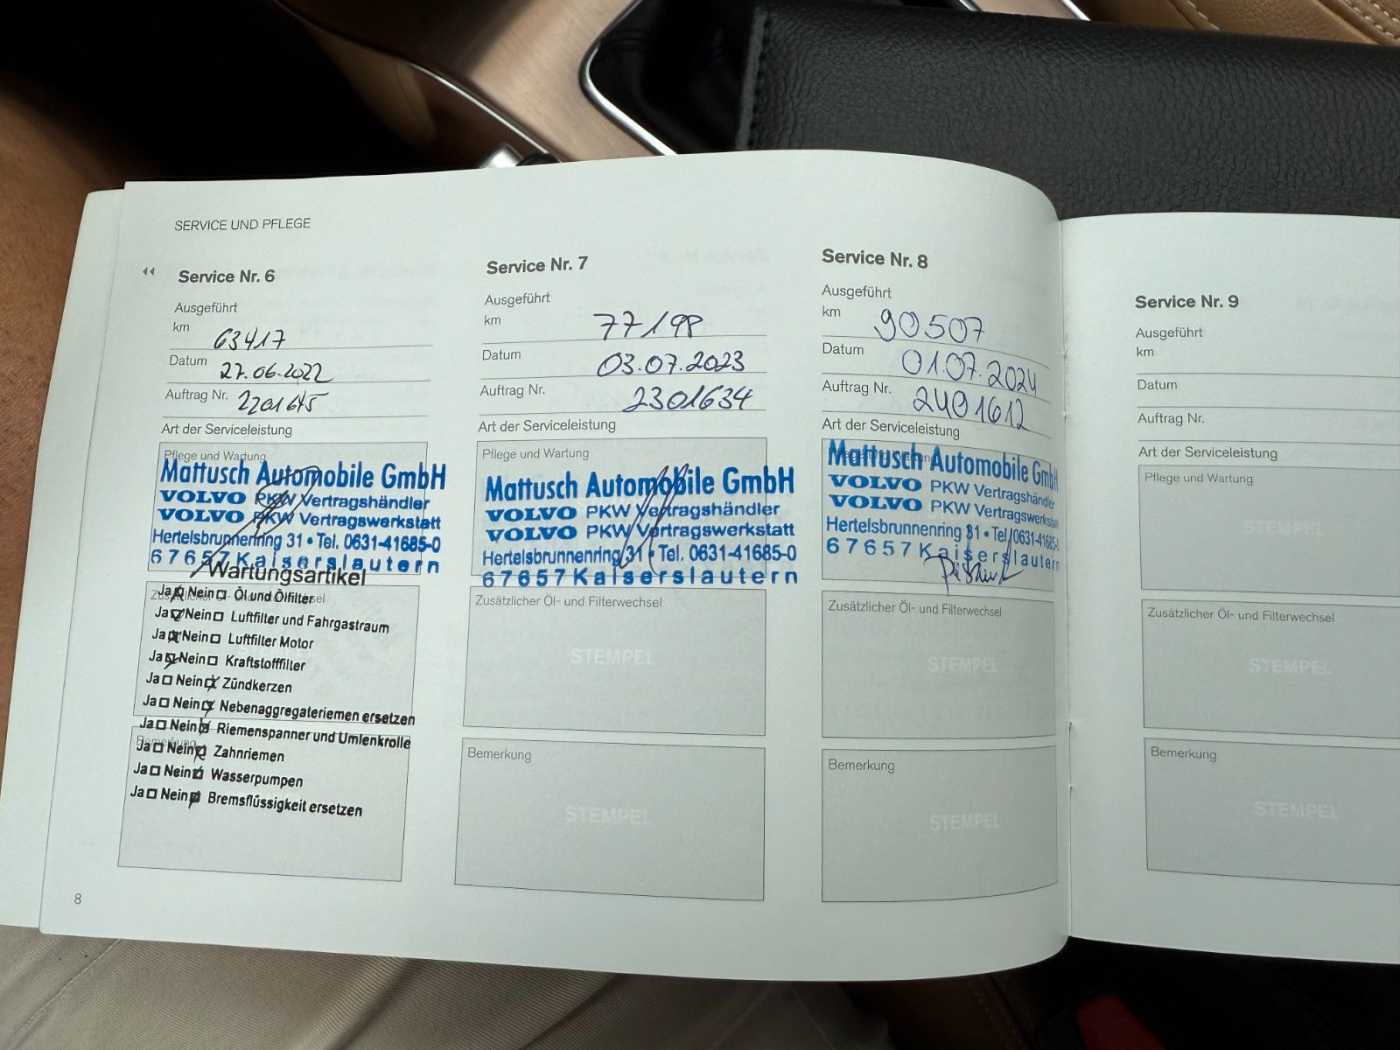 SERVICE UND PFLEGE
Service Nr. 6
Ausgeführt
km 63417
Datum 27.06.2022
Auftrag Nr. 2201645
Art der Serviceleistung
Pflege und Wartung
Mattusch Automobile GmbH
VOLVO PKW Vertragshändler
VOLVO PKW Vertragswerkstatt
Hertelsbrunnenring 31 • Tel. 0631-41685-0
67657 Kaiserslautern
Wartungsartikel
Ja Nein Öl und Ölfilter
Ja Nein Luftfilter und Fahrgastraum
Ja Nein Luftfilter Motor
Ja Nein Kraftstofffilter
Ja Nein Zündkerzen
Ja Nein Nebenaggregateriemen ersetzen
Ja Nein Riemenspanner und Umlenkrolle
Bemerkung
Ja Nein Zahnriemen
Ja Nein Wasserpumpen
Ja Nein Bremsflüssigkeit ersetzen
8
Service Nr. 7
Ausgeführt
km 77198
Datum 03.07.2023
Auftrag Nr. 2301634
Art der Serviceleistung
Pflege und Wartung
Mattusch Automobile GmbH
VOLVO PKW Vertragshändler
VOLVO PKW Vertragswerkstatt
Hertelsbrunnenring 31 • Tel. 0631-41685-0
67657 Kaiserslautern
Zusätzlicher Öl- und Filterwechsel
STEMPEL
Bemerkung
STEMPEL
Service Nr. 8
Ausgeführt
km 90507
Datum 01.07.2024
Auftrag Nr. 2401612
Art der Serviceleistung
Mattusch Automobile GmbH
VOLVO PKW Vertragshändler
VOLVO PKW Vertragswerkstatt
Hertelsbrunnenring 31 • Tel. 0631-41685-
67657 Kaiserslautern
Zusätzlicher Öl- und Filterwechsel
STEMPEL
Bemerkung
STEMPEL
Service Nr. 9
Ausgeführt
km
Datum
Auftrag Nr.
Art der Serviceleistung
Pflege und Wartung
STEMPEL
Zusätzlicher Öl- und Filterwechsel
STEMPEL
Bemerkung
STEMPEL